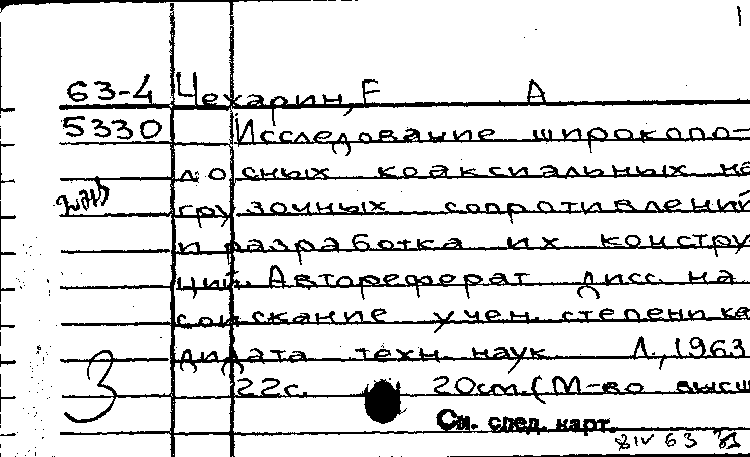 63-4 Чехарин, Е А
5330 Исследование широкопо-
лосных коаксиальных на
грузочных сопротивлений
и разработка их констру
ций. Автореферат дисс. на
соискание учен. степени ка
дидата техн. наук Л., 1963
3 22с. 20см. (М-во высш
См. спед. карт.
63